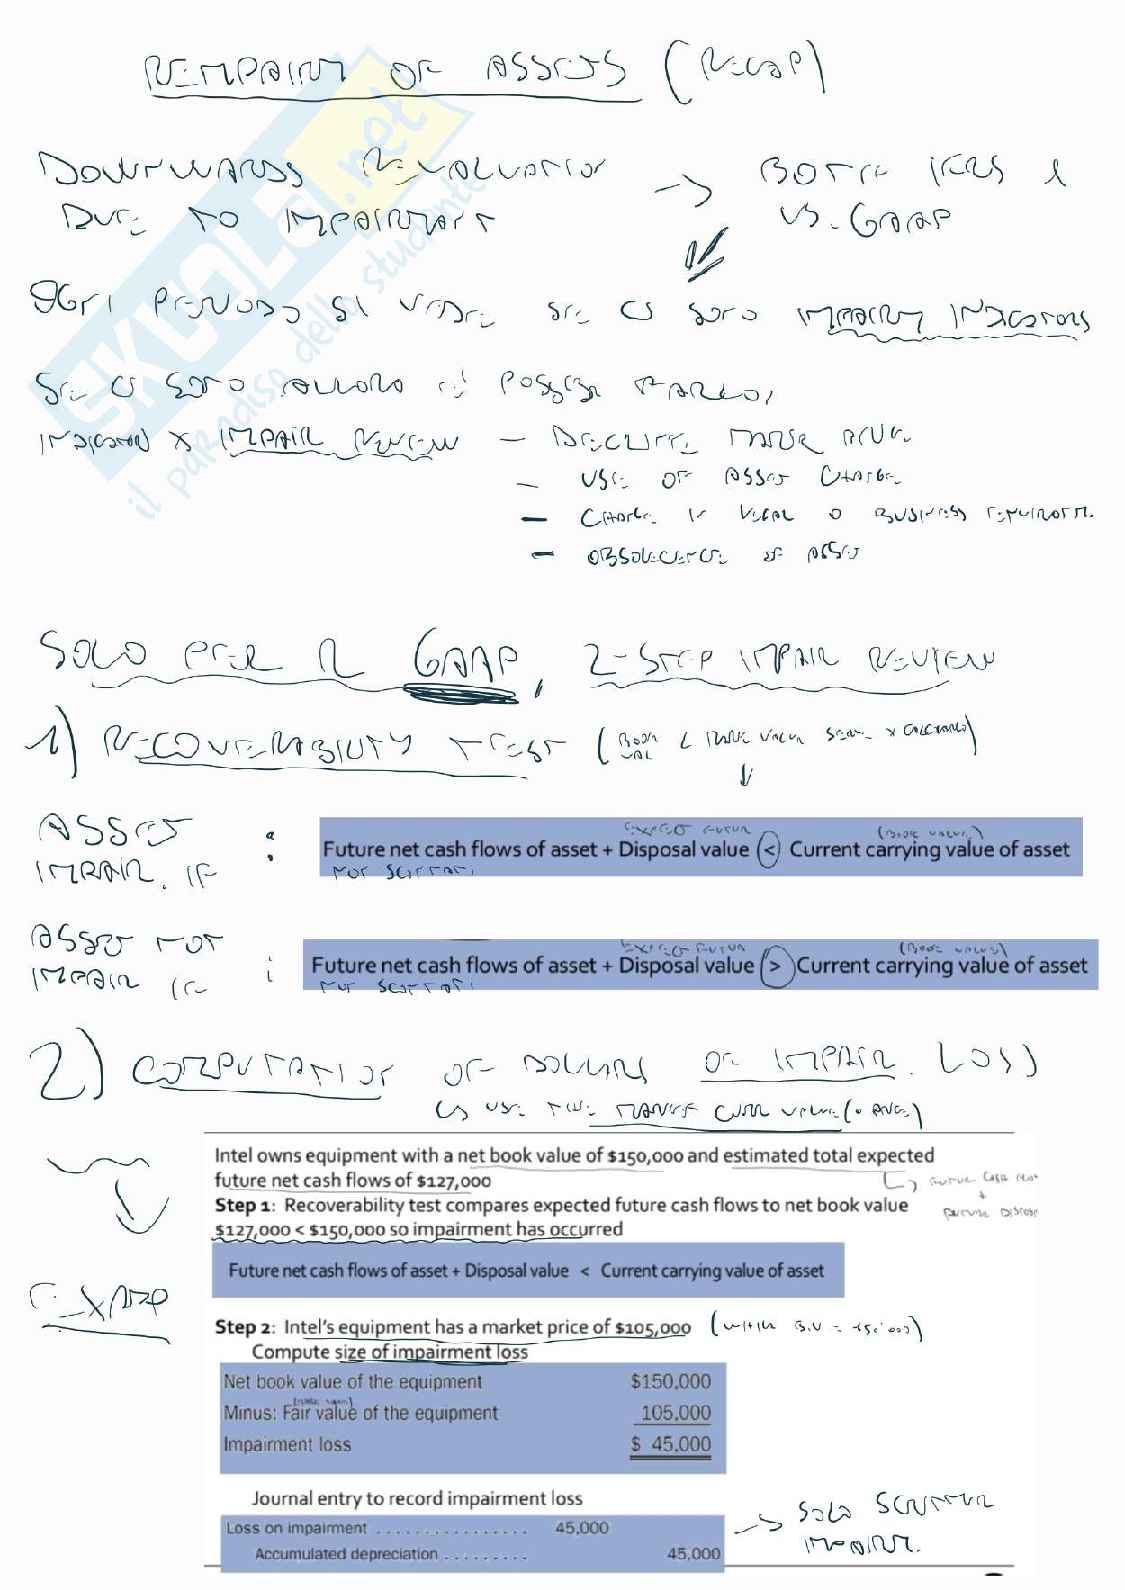 OF ASSETS (RECAP)
DOWNWARDS REVALUATION → BOTH IFRS &
DUE TO IMPAIRMENT US. GAAP
OGNI PERIODO SI VEDE SE CI SONO IMPAIRM INDICATORS
SE CI SONO ALLORO POSSO FARLO,
INDICATORI X IMPAIR REVIEW – DECLINE MARK VALUE
– USE OF ASSET CHANGE
– CHANGE IN LEGAL O BUSINESS ENVIRONM.
– OBSOLESCENCE OF ASSET
SKUOLA.net
il paradiso dello studente
SOLO PER GAAP, 2-STEP IMPAIR REVIEW
1) RECOVERABILITY TEST (BOOK VAL < MARK VALUE
ASSET IMPAIR. IF :
EXPECT FUTUR (BOOK VALUE)
Future net cash flows of asset + Disposal value < Current carrying value of asset
NOT SCONTATI
ASSET NOT IMPAIR IF :
EXPECT FUTUR (BOOK VALUE)
Future net cash flows of asset + Disposal value > Current carrying value of asset
NOT SCONTATI
2) COMPUTATION OF DOLLARS OF IMPAIR. LOSS
↳ USE THE MARKET CURR VALUE
Intel owns equipment with a net book value of $150,000 and estimated total expected
future net cash flows of $127,000
↳ FUTURE CASH FLOW
+
Step 1: Recoverability test compares expected future cash flows to net book value
$127,000 < $150,000 so impairment has occurred
Future net cash flows of asset + Disposal value < Current carrying value of asset
EXAMP
Step 2: Intel's equipment has a market price of $105,000 (WITH B.V =
Compute size of impairment loss
Net book value of the equipment $150,000
Minus: Fair value of the equipment 105,000
Impairment loss $ 45,000
Journal entry to record impairment loss
Loss on impairment ................ 45,000
Accumulated depreciation ......... 45,000
→ SOLO SCRITTURA
IMPAIRM.